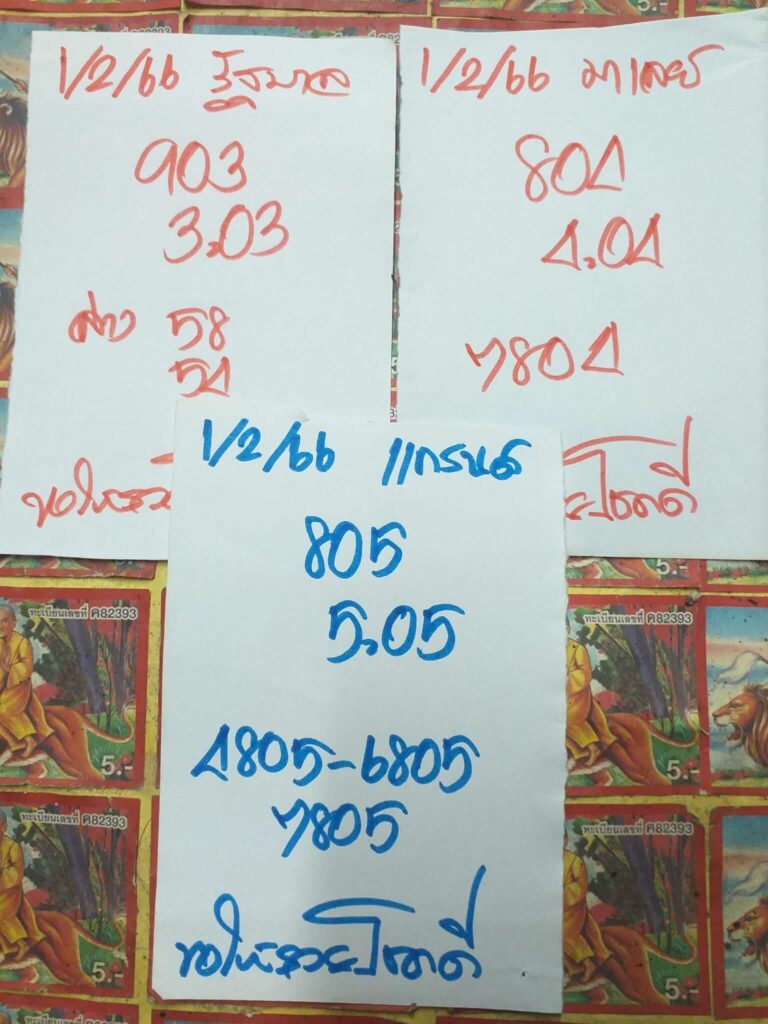 1/2/66 รัฐบาล
903
3.03
ล่าง 58
54
ขอให้รวย
1/2/66 มาเลย์
804
4.04
7804
โชคดี
1/2/66 แกรนด์
805
5.05
4805-6805
7805
ขอให้รวยโชคดี
ทะเบียนเลขที่ ค82393
5.-
ทะเบียนเลขที่ ค82393
5.-
ทะเบียนเลขที่ ค82393
5.-
ทะเบียนเลขที่ ค82393
5.-